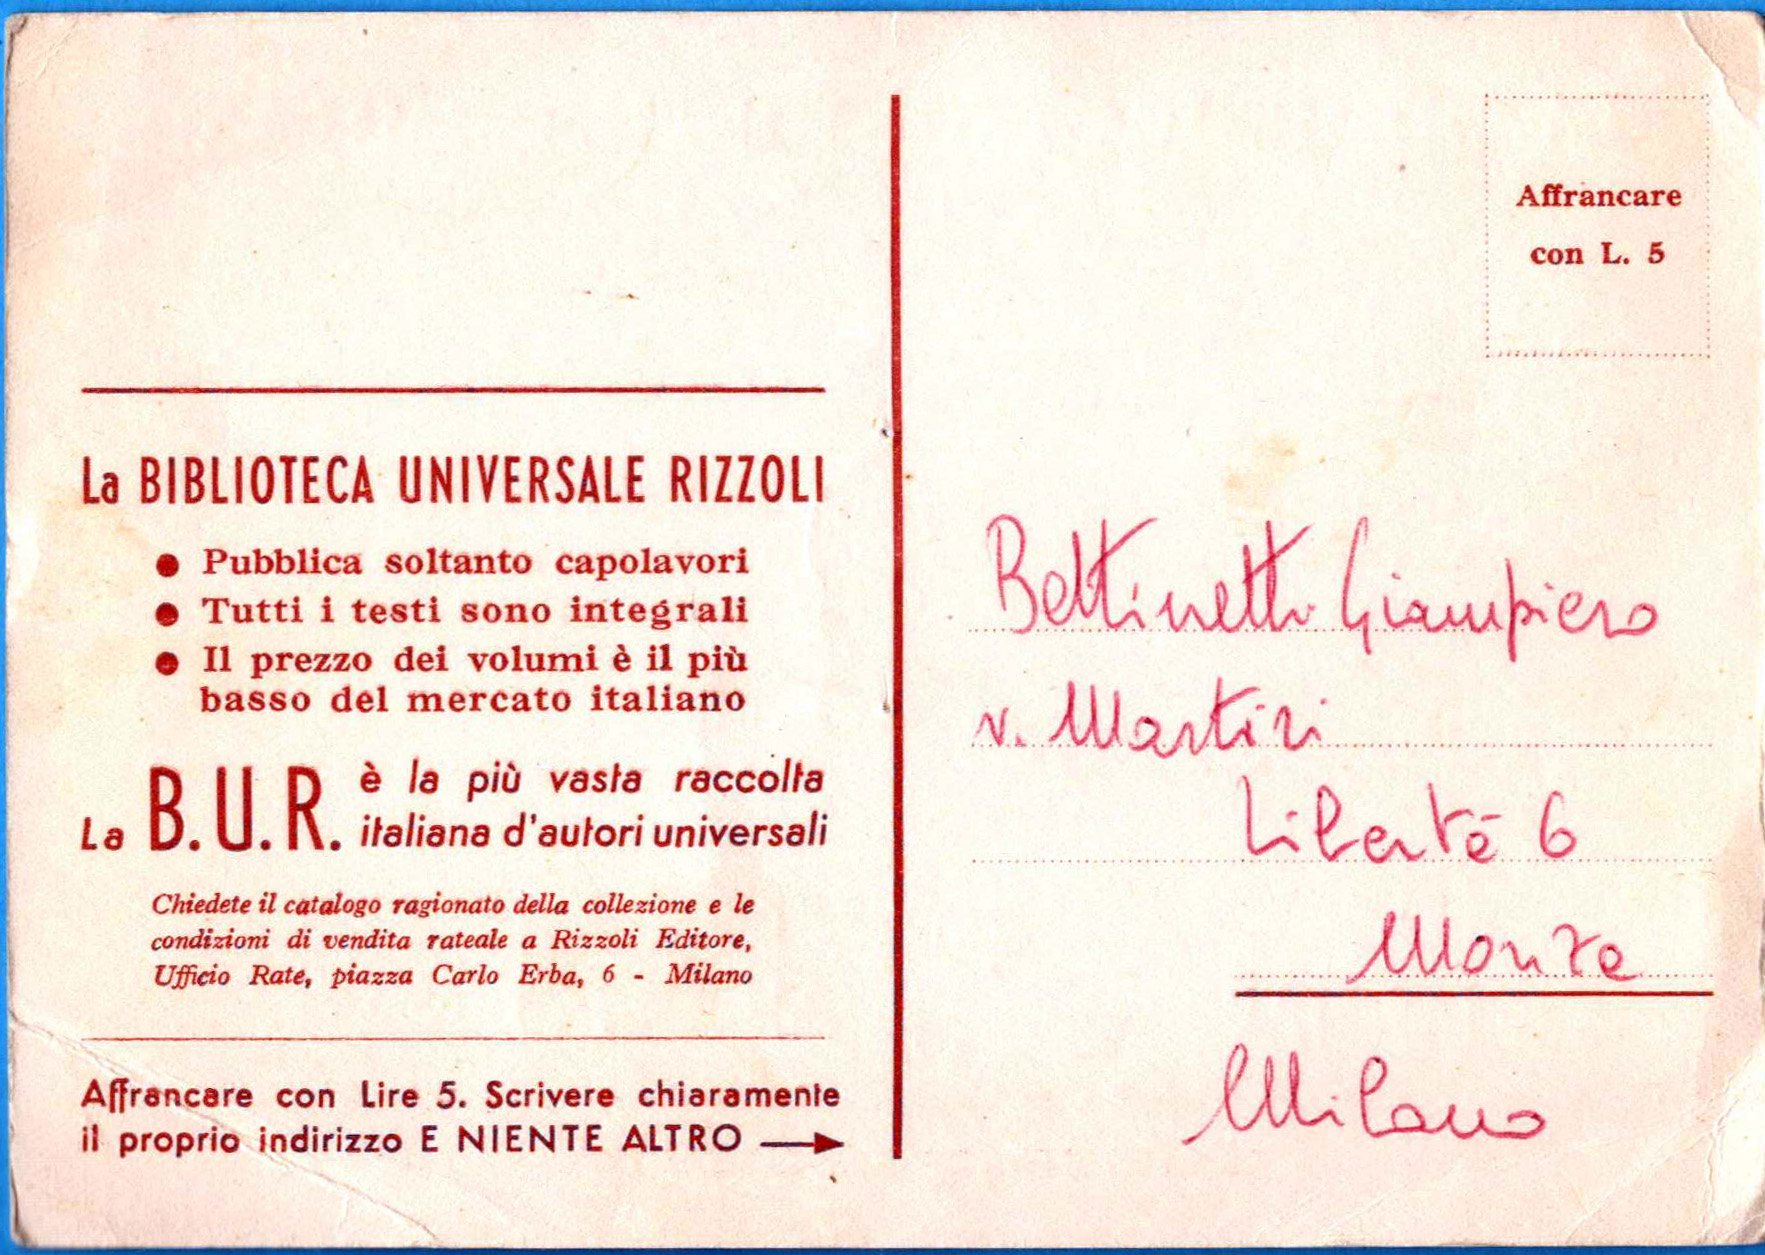 La BIBLIOTECA UNIVERSALE RIZZOLI
● Pubblica soltanto capolavori
● Tutti i testi sono integrali
● Il prezzo dei volumi è il più
basso del mercato italiano
La B.U.R. è la più vasta raccolta
italiana d'autori universali
Chiedete il catalogo ragionato della collezione e le
condizioni di vendita rateale a Rizzoli Editore,
Ufficio Rate, piazza Carlo Erba, 6 - Milano
Affrancare con Lire 5. Scrivere chiaramente
il proprio indirizzo E NIENTE ALTRO
Affrancare
con L. 5
Bettinetti Giampiero
v. Martiri
Libertà 6
Monza
Milano